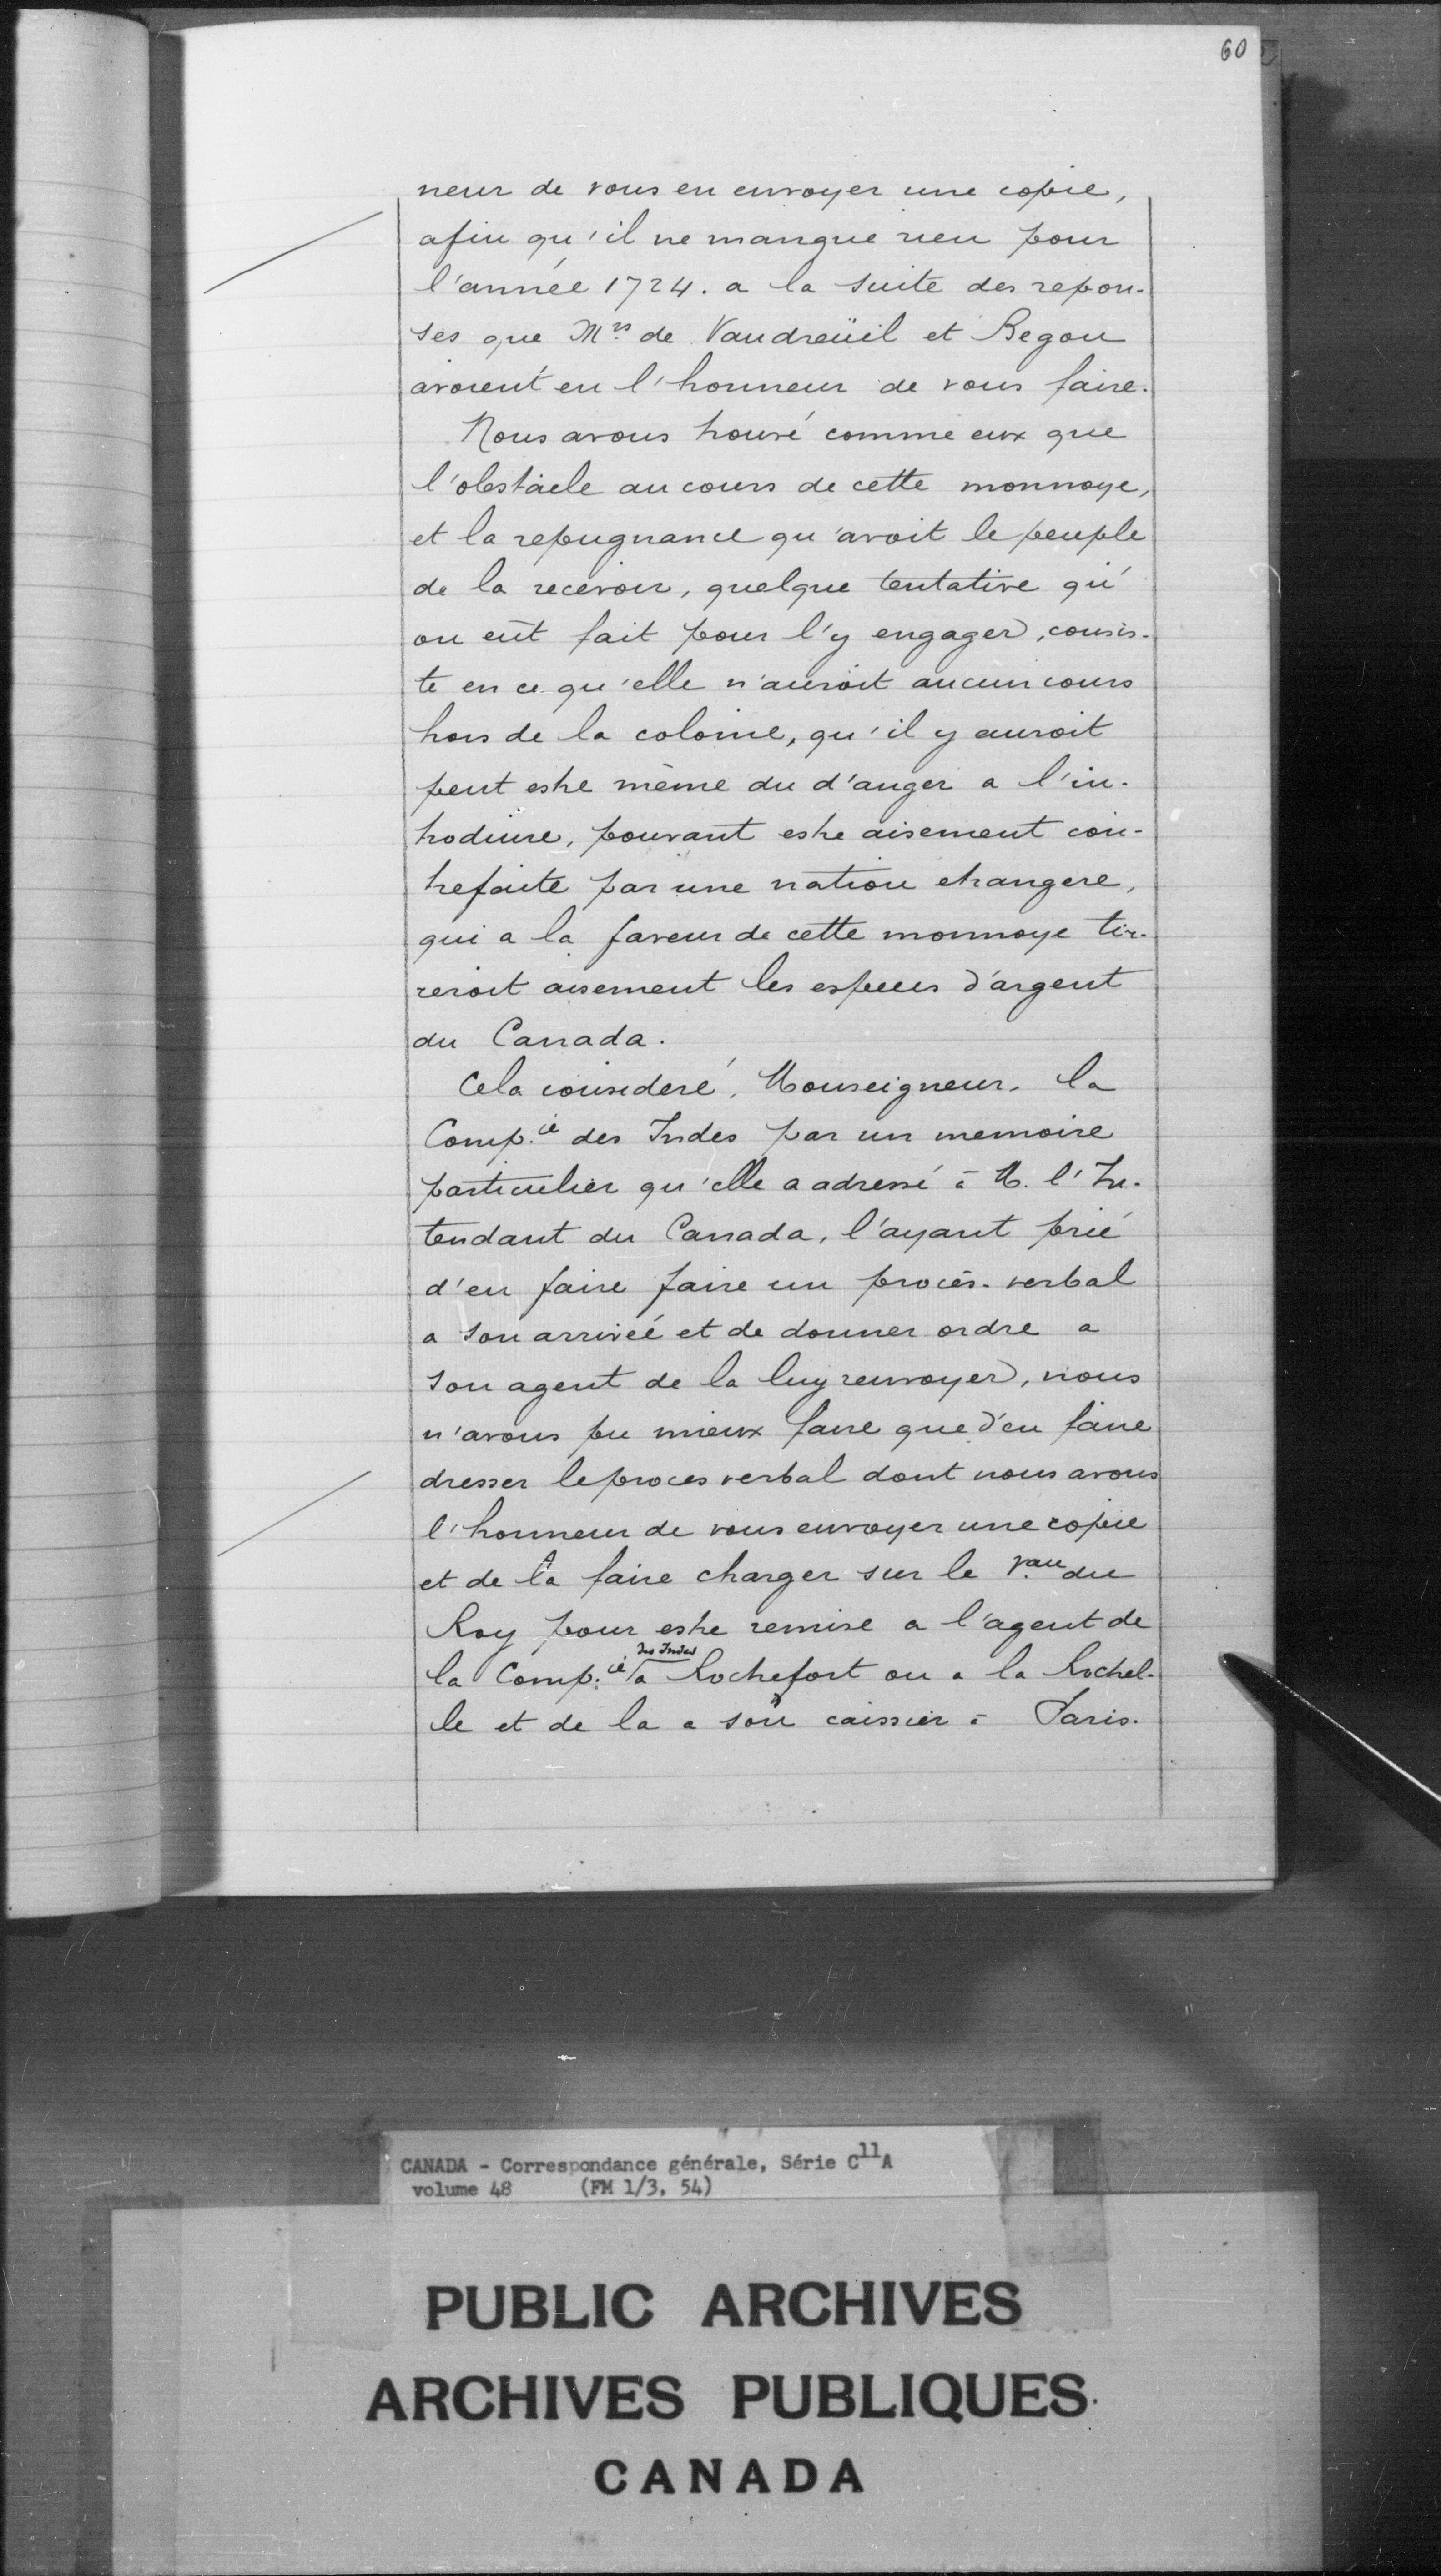 60
neur de vous en envoyer une copie,
afin qu'il ne manque rien pour
l'année 1724. a la suite des repon-
ses que Mrs de Vaudreüil et Begon
avoient eu l'honneur de vous faire.
Nous avons trouvé comme eux que
l'obstacle au cours de cette monnoye,
et la repugnance qu'avoit le peuple
de la recevoir, quelque tentative qu'
on eût fait pour l'y engager, consis-
te en ce qu'elle n'auroit aucun cours
hors de la colonie, qu'il y auroit
peut estre même du d'anger a l'in-
troduire, pouvant estre aisement con-
trefaite par une nation etrangere,
qui a la faveur de cette monnoye tir-
reroit aisement les especes d'argent
du Canada.
Cela consideré, Monseigneur, la
Comp.ie des Indes par un memoire
particulier qu'elle a adressé à M. l'In-
tendant du Canada, l'ayant prié
d'en faire faire un procès-verbal
a son arrivée et de donner ordre a
son agent de la luy renvoyer, nous
n'avons pu mieux faire que d'en faire
dresser le proces verbal dont nous avons
l'honneur de vous envoyer une copie
et de la faire charger sur le V.au du
Roy pour estre remise a l'agent de
la Comp.ie des Indes a Rochefort ou a la Rochel-
le et de la a son caissier à Paris.
CANADA - Correspondance générale, Série C11A
volume 48 (FM 1/3, 54)
PUBLIC ARCHIVES
ARCHIVES PUBLIQUES
CANADA